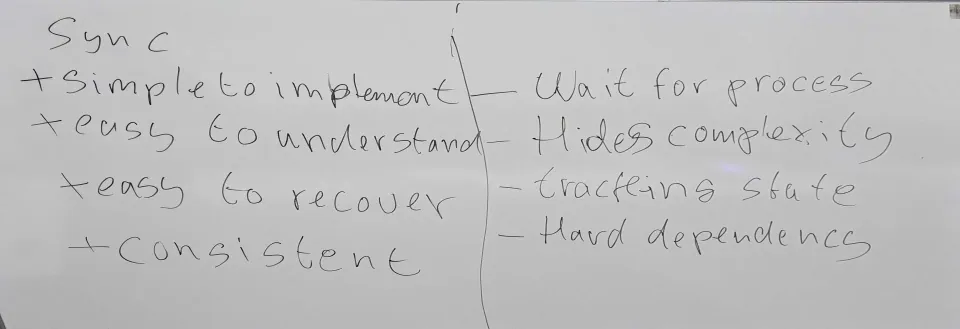 Sync
+ simple to implement
+ easy to understand
+ easy to recover
+ consistent
- Wait for process
- Hides complexity
- tracking state
- Hard dependency